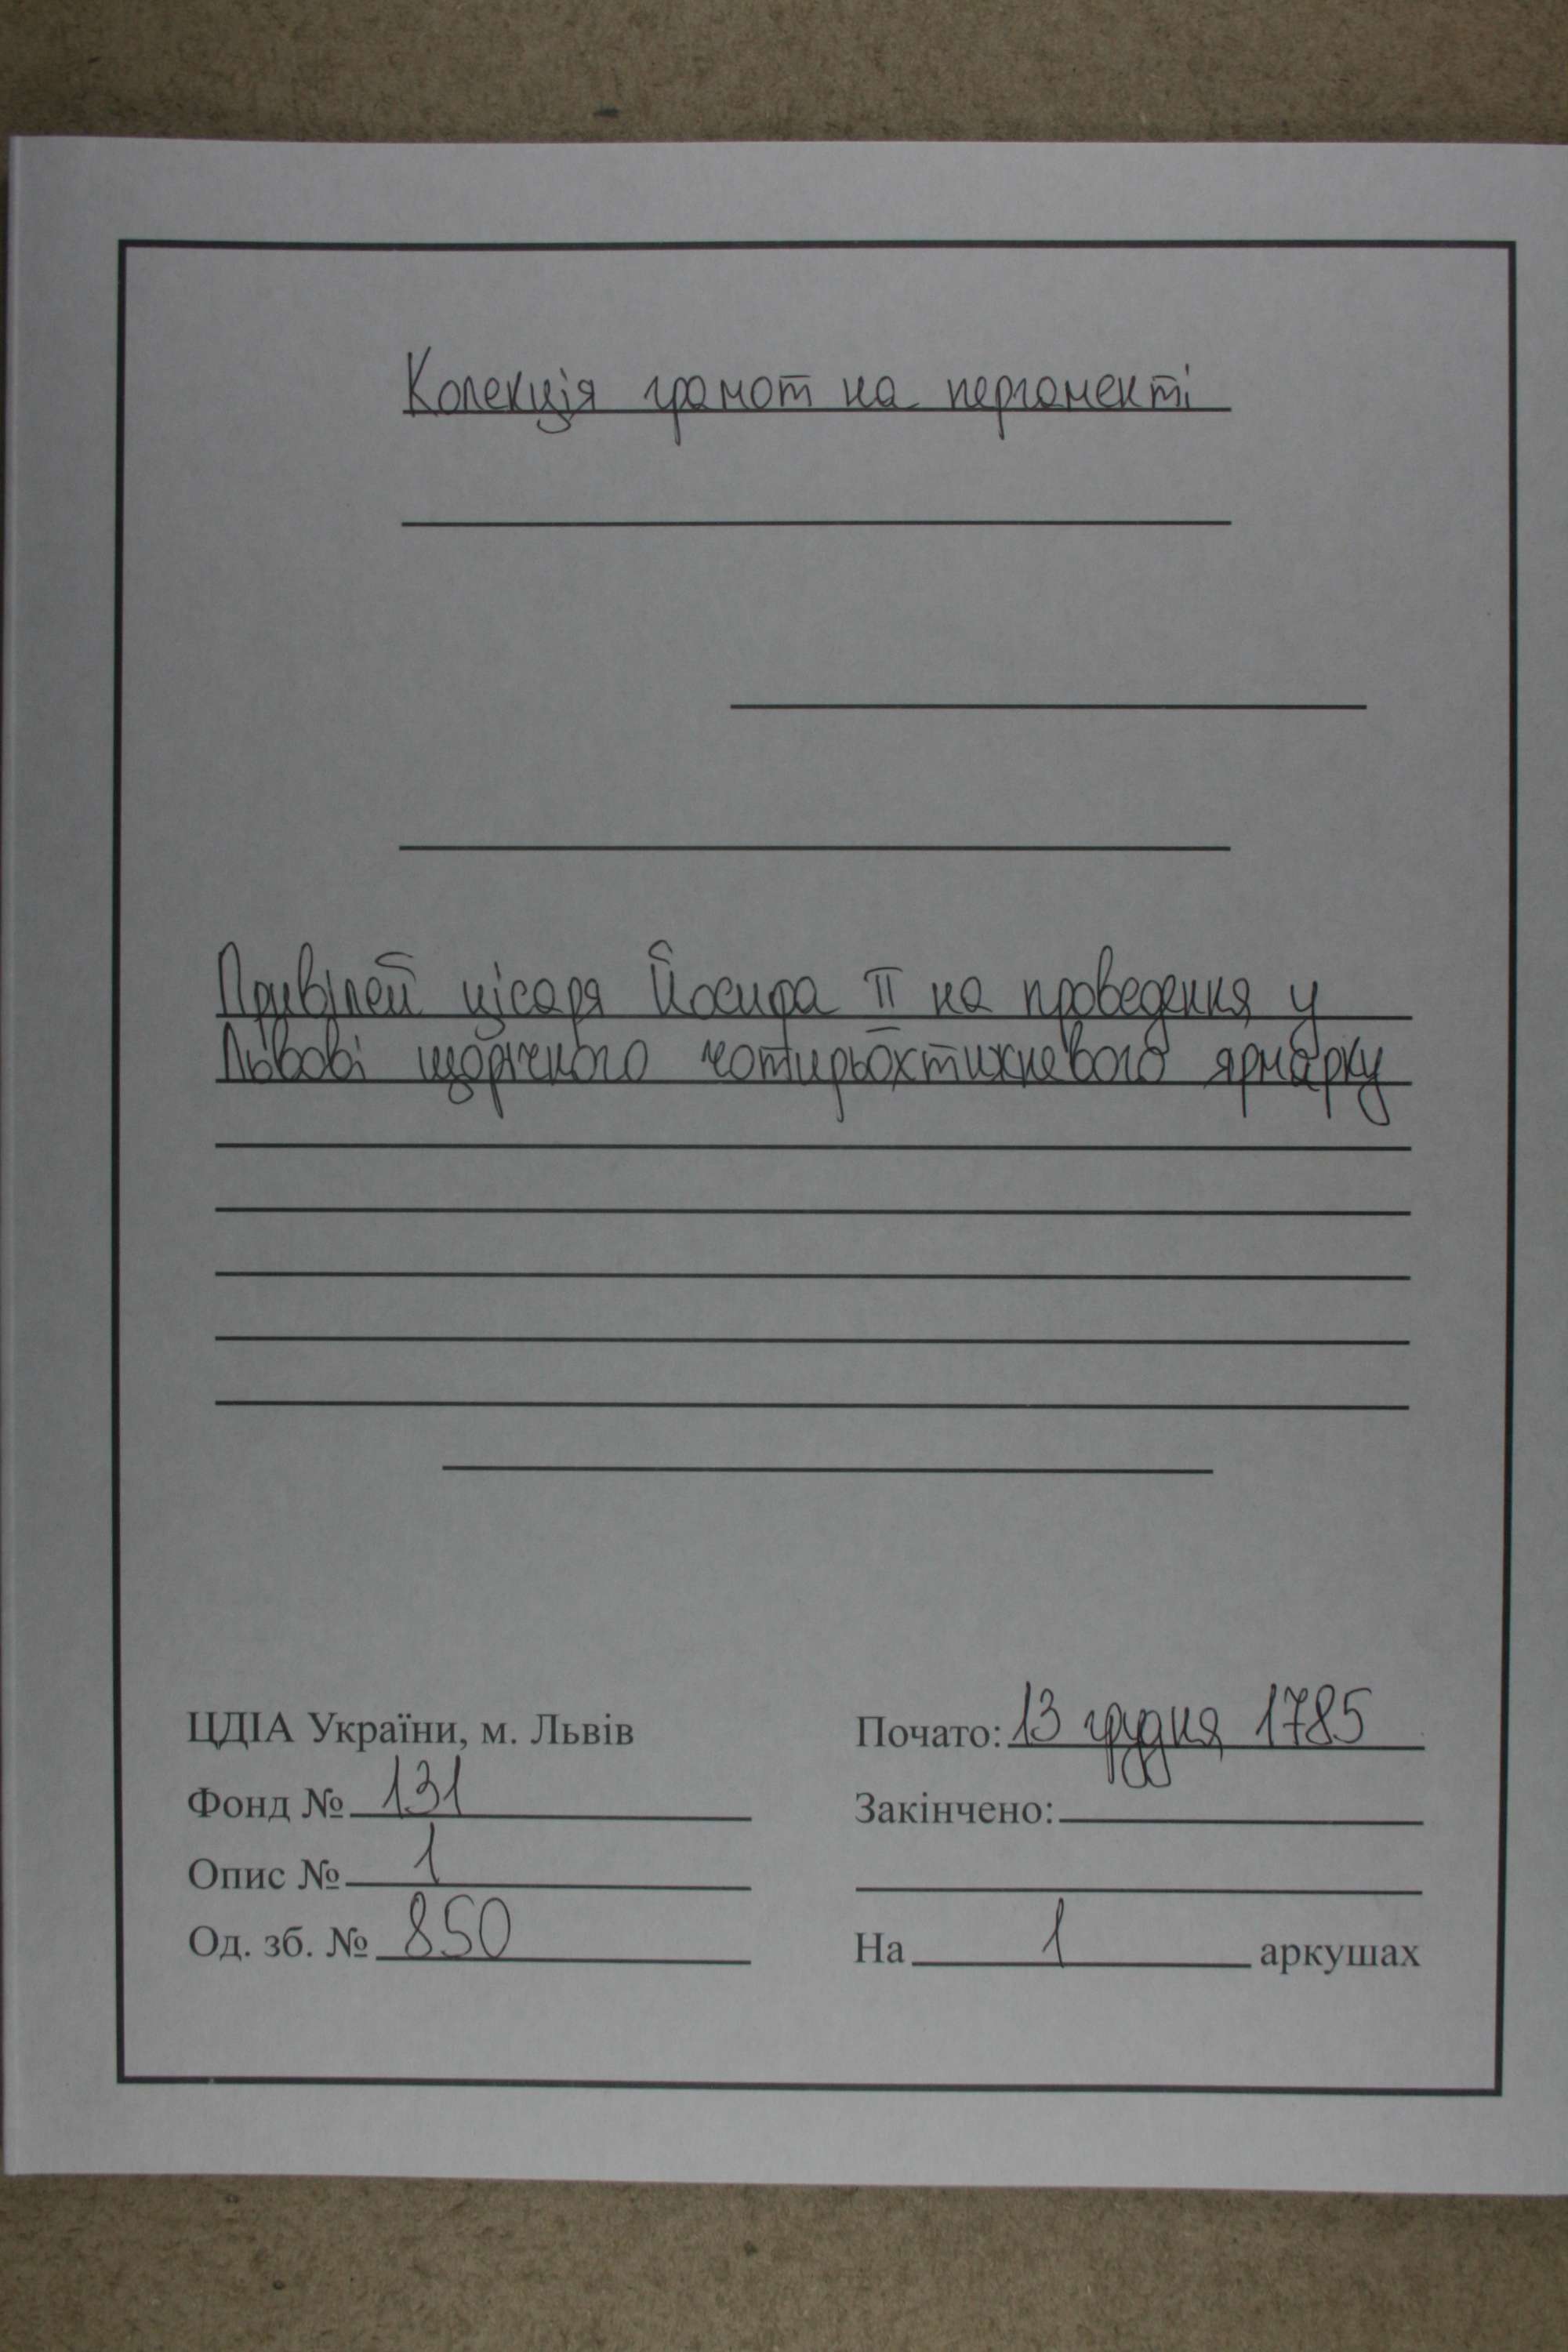 Колекція грамот на пергаменті
Привілей цісаря Йосифа II на проведення у
Львові щорічного чотирьохтижневого ярмарку
ЦДІА України, м. Львів
Фонд № 131
Опис № 1
Од. зб. № 850
Почато: 13 грудня 1785
Закінчено:
На 1 аркушах